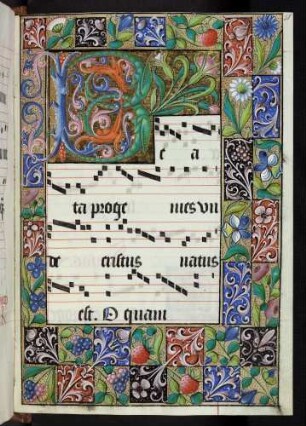 B
e a
ta proge nies vn
de cristus natus
est. O quam